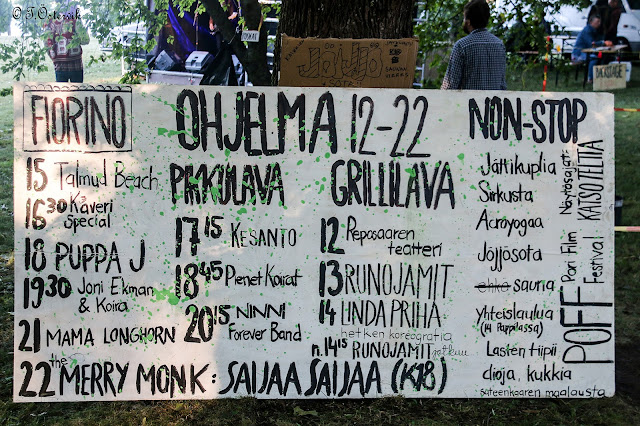 © T. Östervik
JoJo
FIORINO
15 Talmud Beach
16 30 Kaveri Special
18 PUPPA J
19 30 Joni Ekman & Koira
21 MAMA LONGHORN
22 the MERRY MONK: SAIJAA SAIJAA (K18)
OHJELMA 12-22
PIKKULAVA
17 15 KESANTO
18 45 Pienet Koirat
20 15 NINNI Forever Band
GRILLILAVA
12 Reposaaren teatteri
13 RUNOJAMIT
14 LINDA PRIHA
hetken koreografia
n. 14 15 RUNOJAMIT jatkuu
NON-STOP
Jättikuplia
Sirkusta
Acroyogaa
Jöjjösota
ehkä sauna
Yhteislaulua
(14 Pappilassa)
Lasten tiipii
dioja, kukkia
sateenkaaren maalausta
POFF
Pori Film Festival
KATSOTELTTA
BACKSTAGE